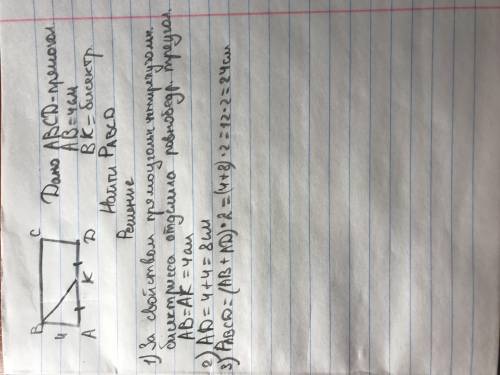 B C
4
A K D
Дано ABCD-прямокол.
AB=4см
BK=биссектр.
Найти PABCD
Решение
1) За свойством прямоугольн. четырехугольн.
биссектриса отделила равнобедр. треугол.
AB=AK=4см
2) AD=4+4=8см
3) PABCD=(AB+AD)·2=(4+8)·2=12·2=24см